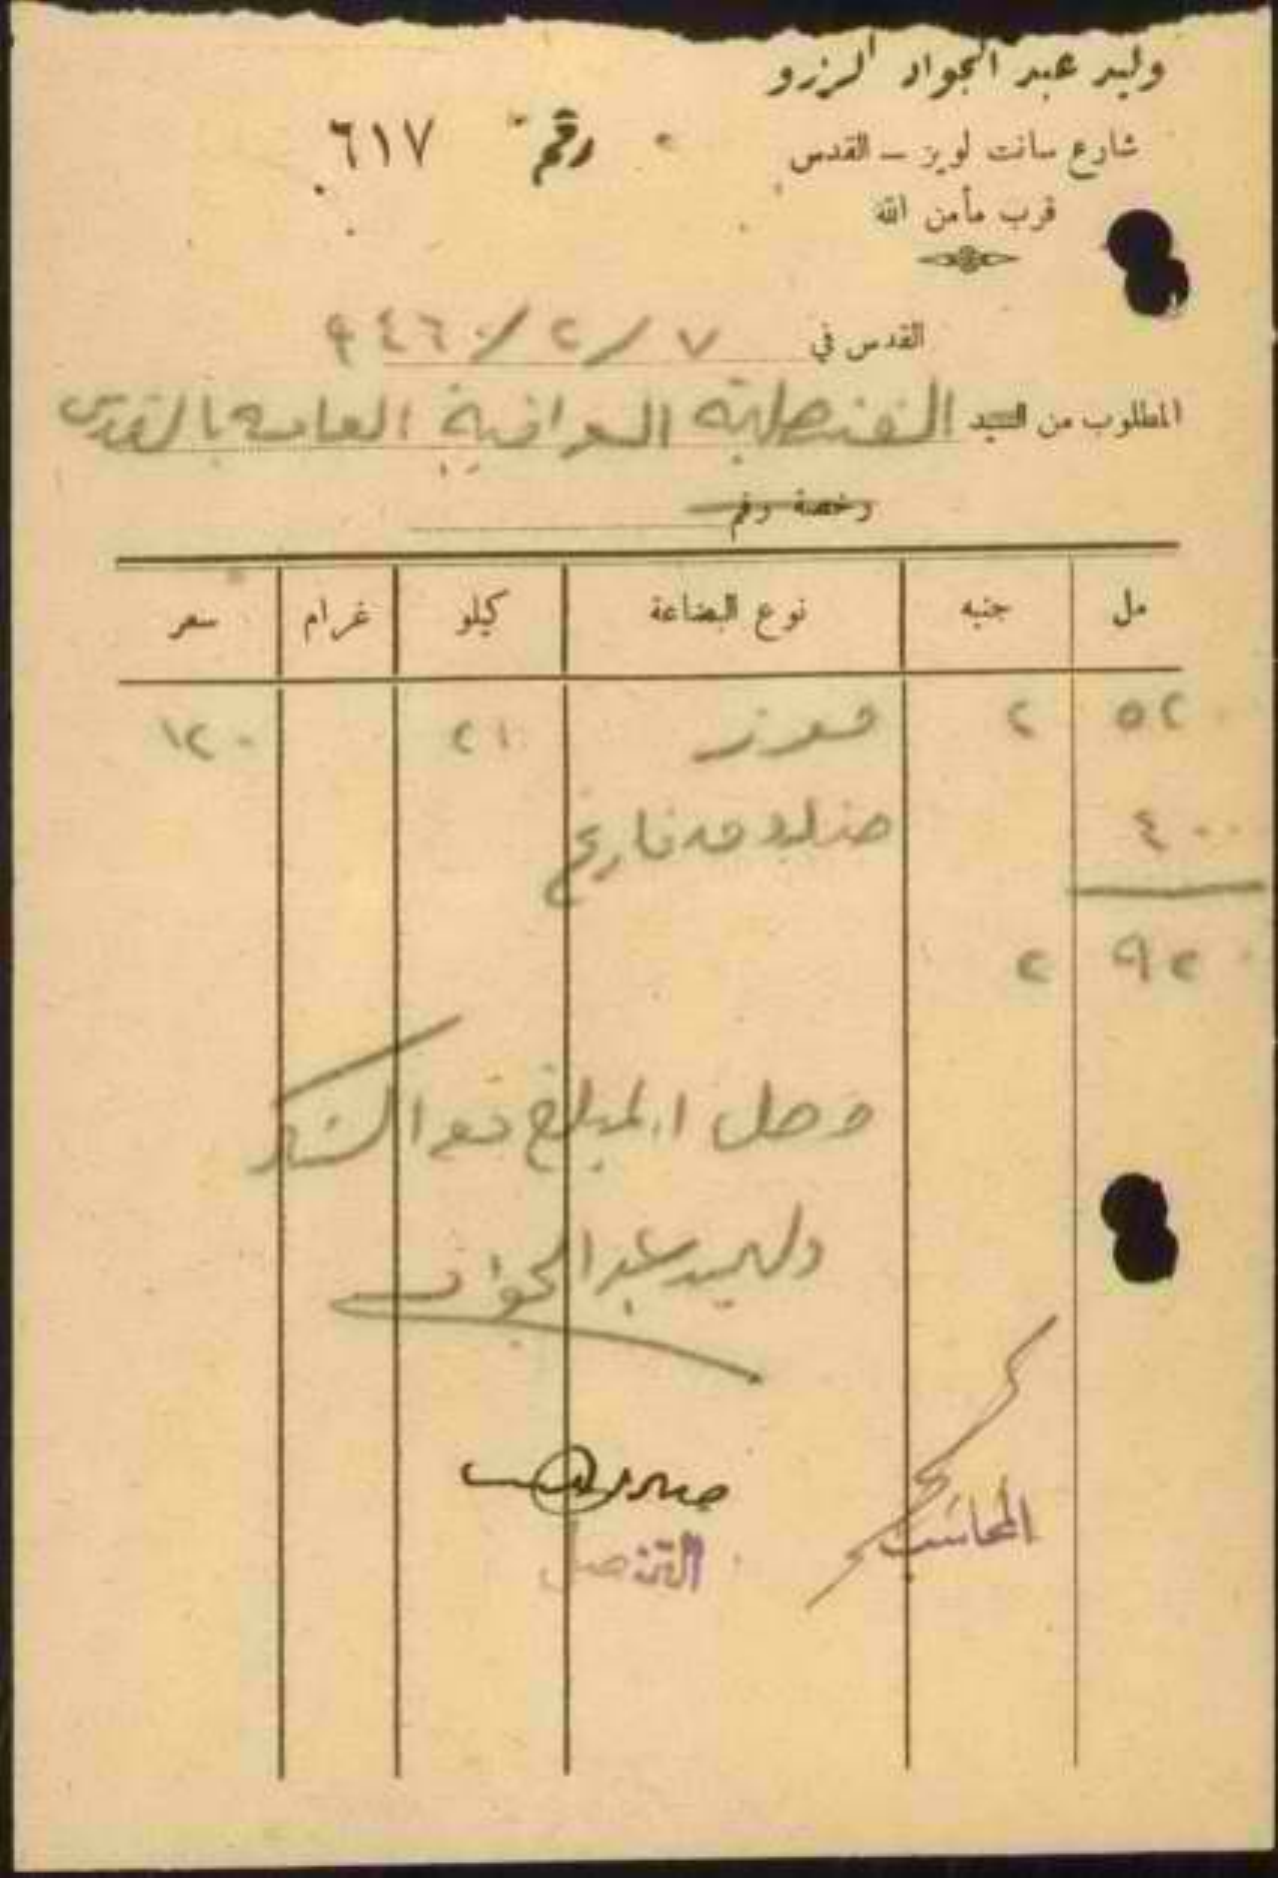 وليد عبد الجواد الرزو
شارع سانت لويز – القدس
رقم ٦١٧
قرب مأمن الله
القدس في ٧ / ٢ / ٩٤٦
المطلوب من السيد القنصلية العراقية العامة بالقدس
رخصة رقم
مل جنيه نوع البضاعة كيلو غرام سعر
٥٢٠ ٢ موز ٢١ ١٢٠
٤٠٠ صندوق فارغ
٩٢٠ ٢
وصل المبلغ مع الشكر
وليد عبد الجواد
المحاسب
القنصل